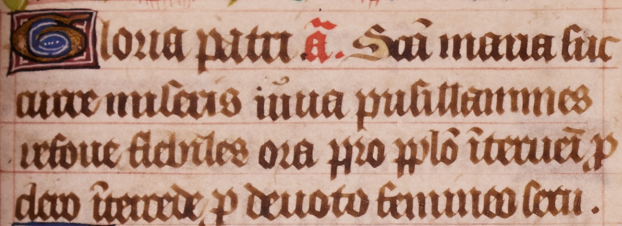 Gloria patri ā. Scā maria suc
curre miseris iuua pusillanimes
refoue flebiles ora pro pplō īterueī p
clero ītercede p deuoto femineo sexu.